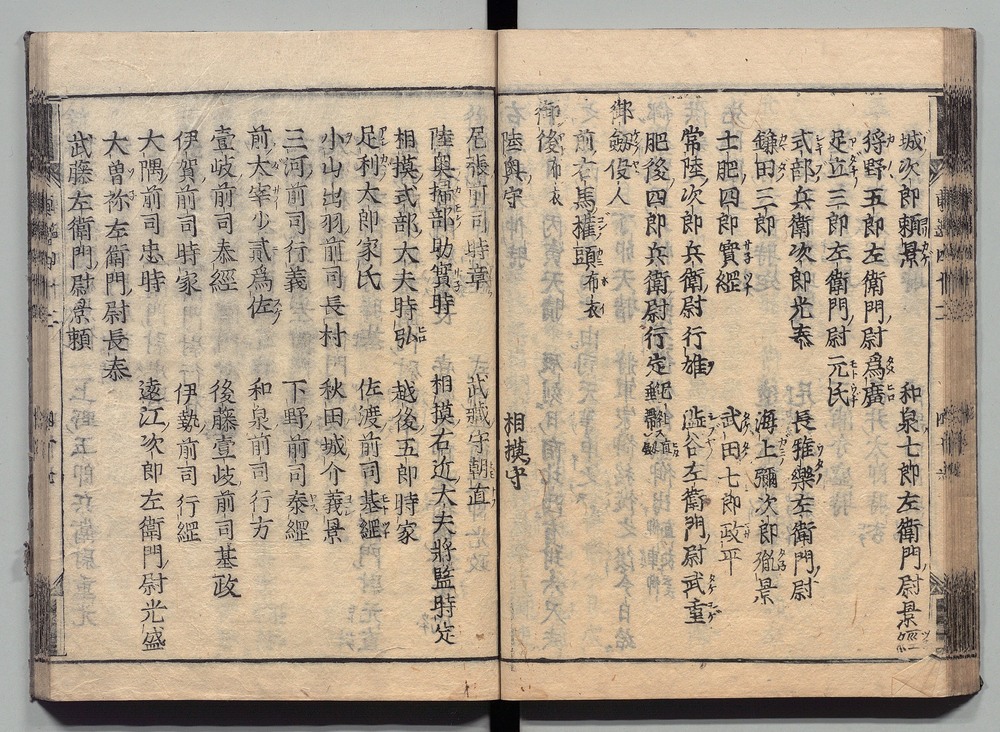 城次郎頼景　和泉七郎左衛門尉景
狩野五郎左衛門尉為廣
足立三郎左衛門尉元氏
式部兵衛次郎光泰　長雅樂左衛門尉
鎌田三郎　海上彌次郎胤景
土肥四郎實經　武田七郎政平
常陸次郎兵衛尉行雄　澁谷左衛門尉武重
肥後四郎兵衛尉行定
御劔役人
前右馬權頭布衣
御後布衣
陸奥守　相摸守
尾張前司時章　武藏守朝直
陸奥掃部助實時　相摸右近大夫將監時定
相摸式部大夫時弘　越後五郎時家
足利太郎家氏　佐渡前司基經
小山出羽前司長村　秋田城介義景
三河前司行義　下野前司泰經
前大宰少貳為佐　和泉前司行方
壹岐前司泰經　後藤壹岐前司基政
伊賀前司時家　伊勢前司行經
大隅前司忠時　遠江次郎左衛門尉光盛
大曽祢左衛門尉長泰
武藤左衛門尉景頼